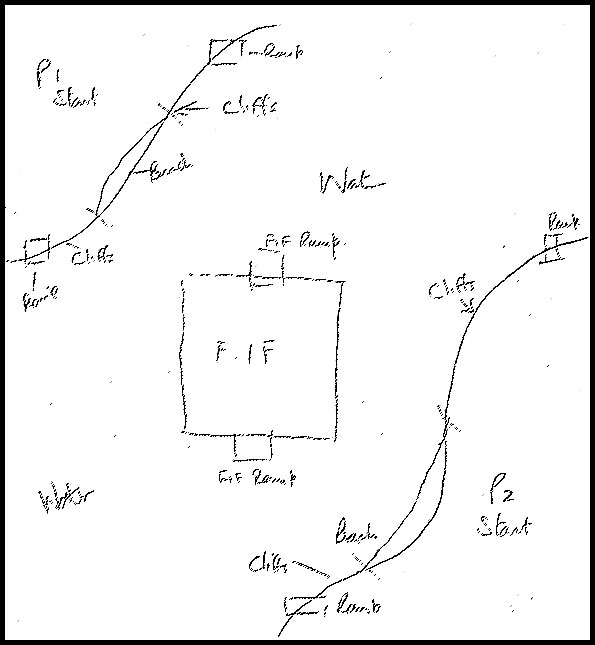 Ramp
P1
Start
Cliffs
Beach
Water
Ramp
F.I.F Ramp.
Cliffs
Cliffs
Ramp
F.I.F
F.I.F Ramp
Water
P2
Start
Beach
Cliffs
Ramp